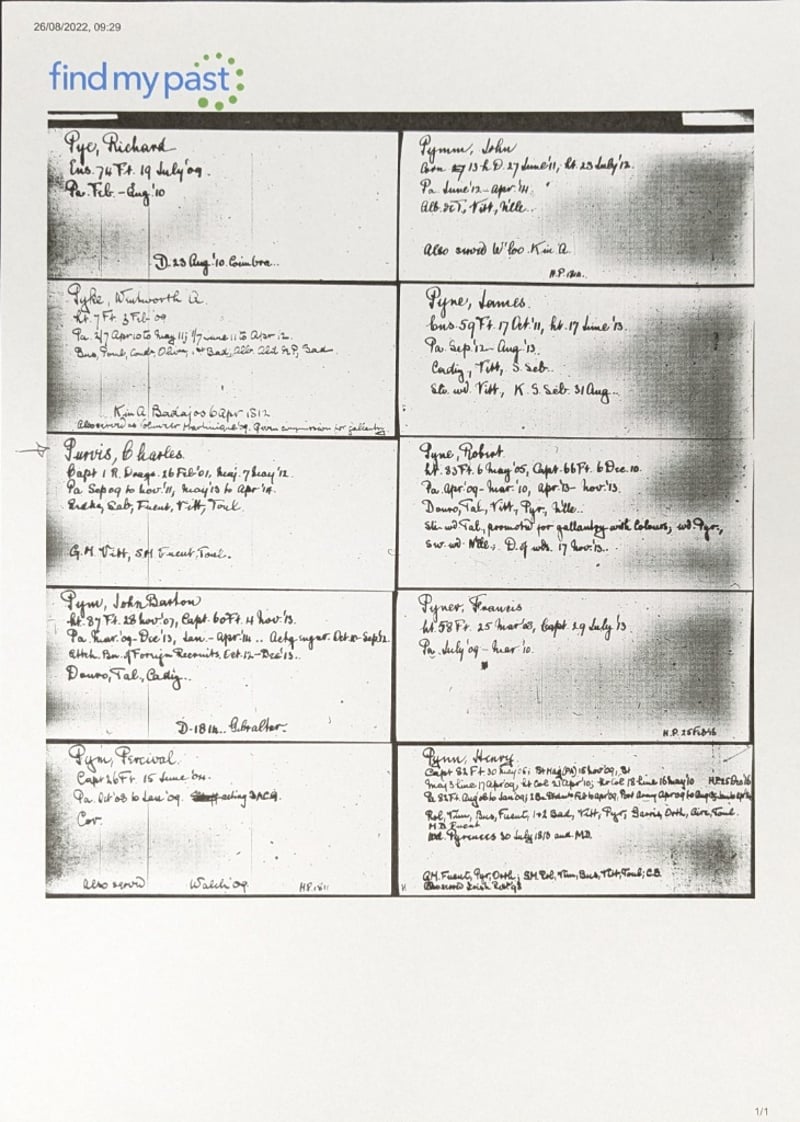 26/08/2022, 09:29
findmypast
Pye, Richard
Ens. 74 Ft. 19 July '09.
Pa. Feb. - Aug '10
D. 23 Aug. '10. Coimbra..
Pyke, Wentworth A.
Lt. 7 Ft. 3 Feb '09
Pa. 2/7 Apr 10 to May 11; 1/7 June 11 to Apr 12.
Bus, Oliv, 1st Bad, Alb. Ald
K in A Badajos 6 Apr 1812
Also served as Martinique '09. Given commission for gallantry
Purvis, Charles.
Capt 1 R. Drags. 26 Feb '01, Maj. 7 May '12.
Pa Sep 09 to Nov. '11, May '13 to Apr '14.
Sab, Fuent, Vitt, Toul.
G.M. Vitt, SM Fuent, Toul.
Pym, John Barton
Lt. 87 Ft. 28 Nov '07, Capt. 60 Ft. 4 Nov. '13.
Pa. Mar. '09 - Dec '13, Jan. - Apr. '14 .. Actg engnr. Oct - Sep 12.
Attch. Bn. of Foreign Recruits. Oct. 12 - Dec '13..
Douro, Tal., Cadiz..
D. 1814.. Gibraltar.
Pym, Percival.
Capt 26 Ft. 15 June '04.
Pa. Oct '08 to Jan '09. acting DACG.
Cor.
Also served Walch '09. HP. 1811
Pymm, John
13 L.D. 27 June '11, Lt. 23 July '12.
Pa June '12 - Apr. '14.
Vitt, Nlle..
Also served W'loo. K in A.
Pyne, James.
Ens. 59 Ft. 17 Oct. '11, Lt. 17 June '13.
Pa. Sep. '12 - Aug '13.
Cadiz, Vitt, S. Seb.
Sev. wd. Vitt, K. S. Seb. 31 Aug..
Pyne, Robert.
Lt. 83 Ft. 6 May '05, Capt. 66 Ft. 6 Dec. 10.
Pa. Apr. '09 - Mar. '10, Apr '13 - Nov. '13.
Douro, Tal, Vitt, Pyr, Nlle..
Sli. wd Tal, promoted for gallantry with Colours, wd. Pyr.,
Sev. wd. Nlle, D. of wds. 17 Nov. '13..
Pyner, Francis
Lt. 58 Ft. 25 Mar '08, Capt. 29 July '13
Pa. July '09 - Mar '10.
H.P. 25 Feb 16
Pynn, Henry.
Capt 82 Ft 30 May '05; Bt Maj (PA) 15 Nov '09, Bt
Maj 3 Line 17 Apr 09, Lt Col 21 Apr 10; Col 18 Line 16 May 10
Rol, Vim, Bus, Fuent, 1+2 Bad, Vitt, Pyr, Garris, Orth, Aire, Toul.
M.D. Fuent
Wd. Pyrenees 30 July 1813 and M.D.
GM. Fuent, Pyr, Orth; SM Rol, Vim, Bus, Vitt, Toul; C.B.
1/1